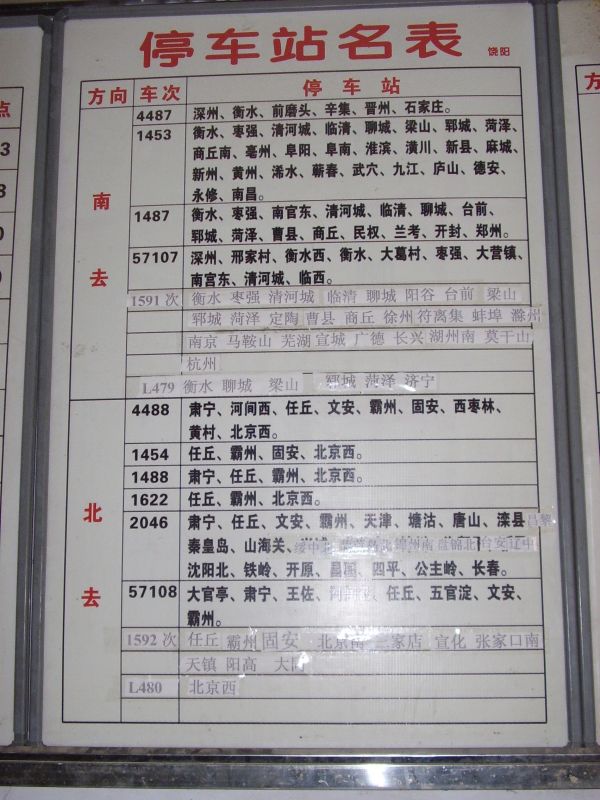 停车站名表 饶阳
方向 车次 停车站
南去
4487 深州、衡水、前磨头、辛集、晋州、石家庄。
1453 衡水、枣强、清河城、临清、聊城、梁山、郓城、菏泽、
商丘南、亳州、阜阳、阜南、淮滨、潢川、新县、麻城、
新州、黄州、浠水、蕲春、武穴、九江、庐山、德安、
永修、南昌。
1487 衡水、枣强、南宫东、清河城、临清、聊城、台前、
郓城、菏泽、曹县、商丘、民权、兰考、开封、郑州。
57107 深州、邢家村、衡水西、衡水、大葛村、枣强、大营镇、
南宫东、清河城、临西。
1591 次 衡水 枣强 清河城 临清 聊城 阳谷 台前 梁山
郓城 菏泽 定陶 曹县 商丘 徐州 符离集 蚌埠 滁州
南京 马鞍山 芜湖 宣城 广德 长兴 湖州南 莫干山
杭州
L479 衡水 聊城 梁山 郓城 菏泽 济宁
北去
4488 肃宁、河间西、任丘、文安、霸州、固安、西枣林、
黄村、北京西。
1454 任丘、霸州、固安、北京西。
1488 肃宁、任丘、霸州、北京西。
1622 任丘、霸州、北京西。
2046 肃宁、任丘、文安、霸州、天津、塘沽、唐山、滦县 昌黎
秦皇岛、山海关、绥中北 锦州南 盘锦北 台安 辽中
沈阳北、铁岭、开原、昌图、四平、公主岭、长春。
57108 大官亭、肃宁、王佐、任丘、五官淀、文安、
霸州。
1592 次 任丘 霸州 固安 北京南 三家店 宣化 张家口南
天镇 阳高 大同
L480 北京西
点
3
3
0
0
方